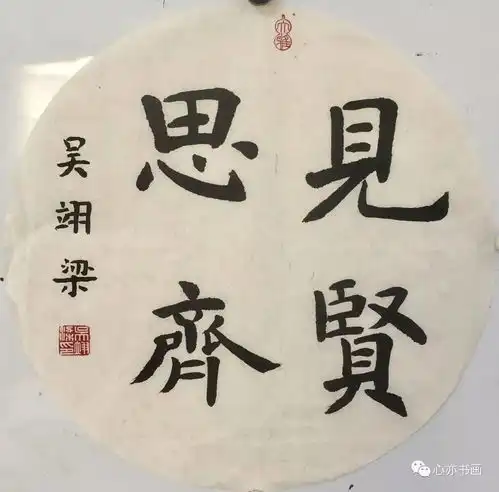 見賢
思齊
吴翊梁
心亦书画